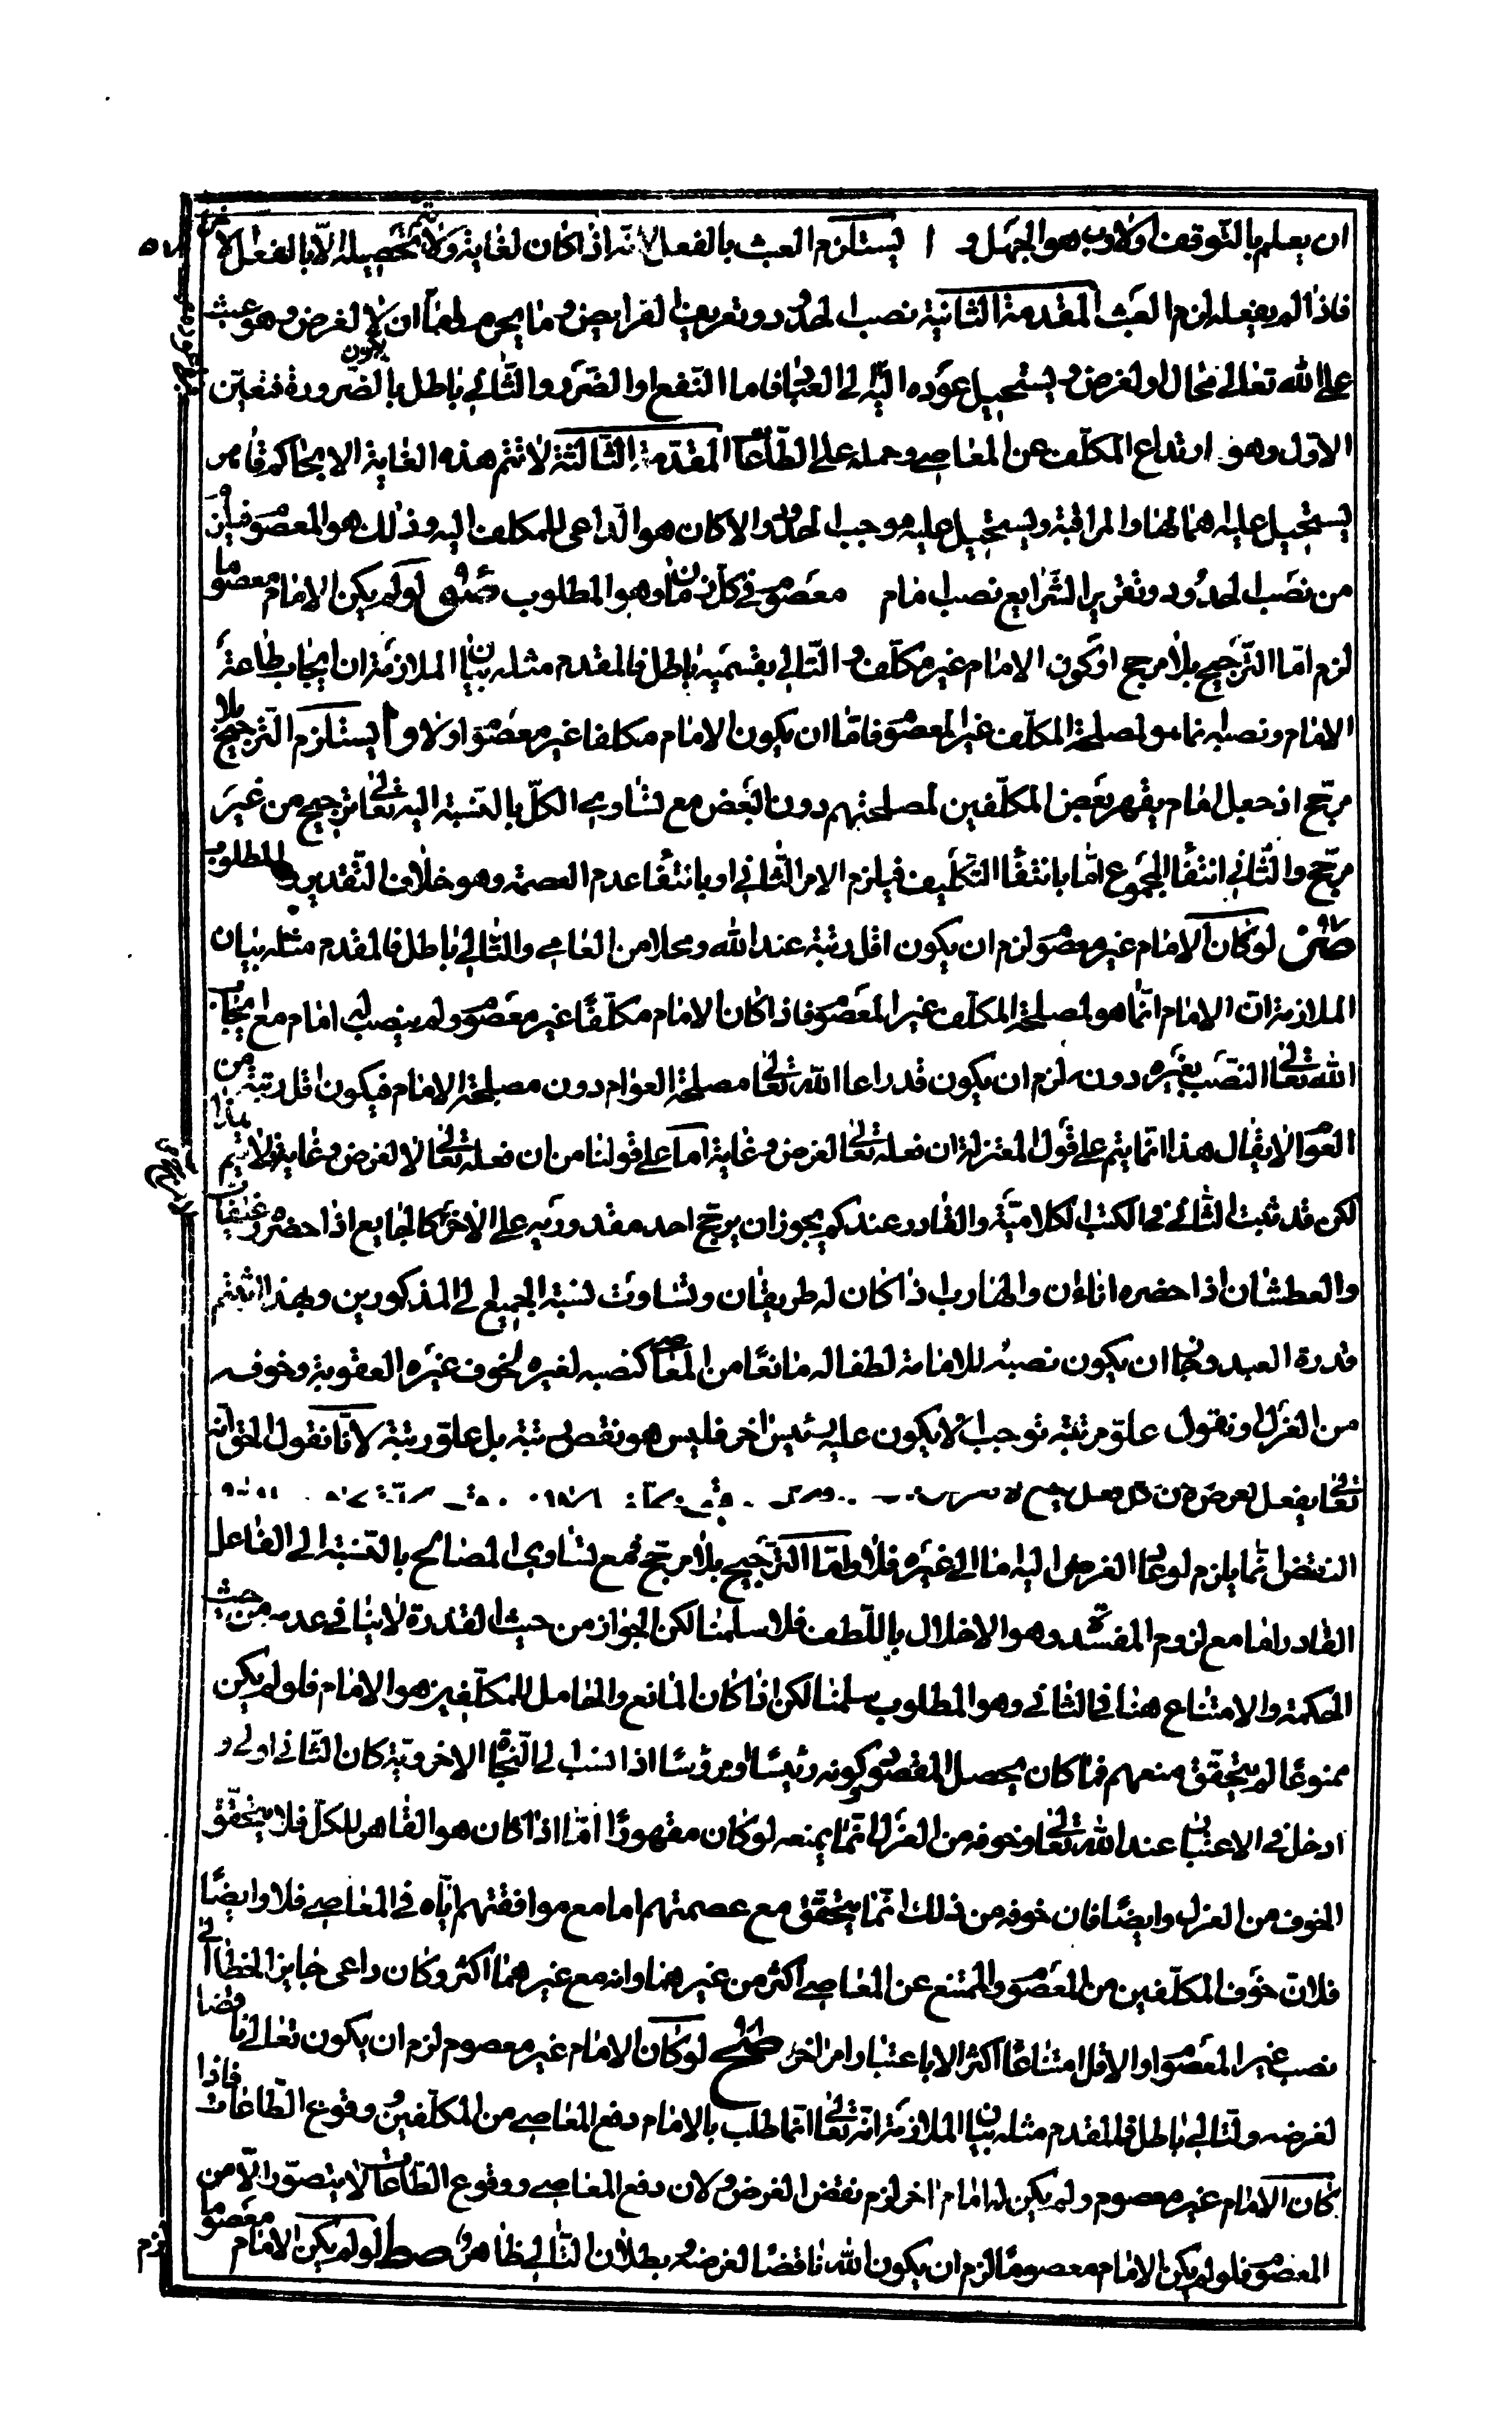 ان يعلم بالتوقف اولا وب هو الجهل و ا يستلزم العبث بالفعل لانه اذا كان لغاية ولا يتم تحصيله الا بالفعل
فاذا لم يفعله لزم العبث المقدمة الثانية نصب الحدود وتعريف الفرايض وما يحرم اما ان لا يكون لغرض وهو عبث
على الله تعالى محال او لغرض ويستحيل عوده اليه الى العباد فاما النفع او الضرر والثاني باطل بالضرورة فتعين
الاول وهو ارتداع المكلف عن المعاصي وحمله على الطاعات المقدمة الثالثة لا تتم هذه الغاية الا بحاكم قاهر
يستحيل عليه اهمالها والمراقبة ويستحيل عليه موجب الحدود والا كان هو الداعي للمكلف اليه وذلك هو المعصوم فيلزم
من نصب الحدود وتقرير الشرايع نصب امام معصوم في كل زمان وهو المطلوب لو لم يكن الامام معصوما
لزم اما الترجيح بلا مرجح او كون الامام غير مكلف والتالي بقسميه باطل فالمقدم مثله بيان الملازمة ان ايجاب طاعة
الامام ونصبه انما هو لمصلحة المكلف غير المعصوم فاما ان يكون الامام مكلفا غير معصوم او لا و ا يستلزم الترجيح بلا
مرجح اذ جعل امام يقهر بعض المكلفين لمصلحتهم دون البعض مع تساوي الكل بالنسبة اليه تعالى ترجيح من غير
مرجح والثاني انتفاء المجموع اما بانتفاء التكليف فيلزم الامر الثاني او بانتفاء عدم العصمة وهو خلاف التقدير والمطلوب
لو كان الامام غير معصوم لزم ان يكون اقل رتبة عند الله ومحلا من العاصي والتالي باطل فالمقدم مثله بيان
الملازمة ان الامام انما هو لمصلحة المكلف غير المعصوم فاذا كان الامام مكلفا غير معصوم ولم ينصب له امام مع ايجاب
الله تعالى النصب بغيره دونه لزم ان يكون قد راعا الله تعالى مصلحة العوام دون مصلحة الامام فيكون اقل رتبة من
العوام لا يقال هذا انما يتم على قول المعتزلة ان فعله تعالى لغرض وغاية اما على قولنا من ان فعله تعالى لا لغرض وغاية فلا يتم هذا
لكن قد ثبت الثاني في الكتب الكلامية والقادر عندكم يجوز ان يرجح احد مقدوريه على الاخر كالجايع اذا حضره رغيفان
والعطشان اذا حضره اناءان والهارب اذا كان له طريقان وتساوت نسبة الجميع الى المذكورين وبهذا اثبتم
قدرة العبد وجاز ان يكون نصبه للامامة لطفا له مانعا من المعاصي كنصبه لغيره لخوف غيره العقوبة وخوفه
من العزل ونقول علو مرتبته توجب ان لا يكون عليه رئيس اخر فليس هو نقص رتبة بل علو رتبة لانا نقول الحق انه
تعالى يفعل لغرض
النقض انما يلزم لو عاد الغرض اليه اما الى غيره فلا اما الترجيح بلا مرجح فمع تساوي المصالح بالنسبة الى الفاعل
القادر اما مع لزوم المفسدة وهو الاخلال باللطف فلا سلمنا لكن الجواز من حيث القدرة لا ينافي عدمه من حيث
الحكمة والامتناع هنا في الثاني وهو المطلوب سلمنا لكن اذا كان المانع والحامل للمكلفين هو الامام فلو لم يكن
ممنوعا لم يتحقق منعهم فما كان يحصل المقصود كونه رئيسا او مرؤسا اذا نسب الى النجاة الاخروية كان الثاني اولى و
ادخل في الاعتبار عند الله تعالى وخوفه من العزل انما يمنعه لو كان مقهورا اما اذا كان هو القاهر للكل فلا يتحقق
الخوف من العزل وايضا فان خوفه من ذلك انما يتحقق مع عصمتهم اما مع موافقتهم اياه في المعاصي فلا وايضا
فلان خوف المكلفين من المعصوم والممتنع عن المعاصي اكثر من غيرهما وانه مع غيرهما اكثر وكان داعي جايز الخطا الى
نصب غير المعصوم او الاقل امتناعا اكثر الا باعتبار امر اخر صح لو كان الامام غير معصوم لزم ان يكون تعالى ناقضا
لغرضه والتالي باطل فالمقدم مثله بيان الملازمة انه تعالى انما طلب بالامام دفع المعاصي من المكلفين ووقوع الطاعات فاذا
كان الامام غير معصوم ولم يكن له امام اخر لزم نقض الغرض لان دفع المعاصي ووقوع الطاعات لا يتصور الا من
المعصوم فلو لم يكن الامام معصوما لزم ان يكون الله ناقضا لغرضه بطلان التالي ظاهر صط لو لم يكن الامام معصوما
لزم